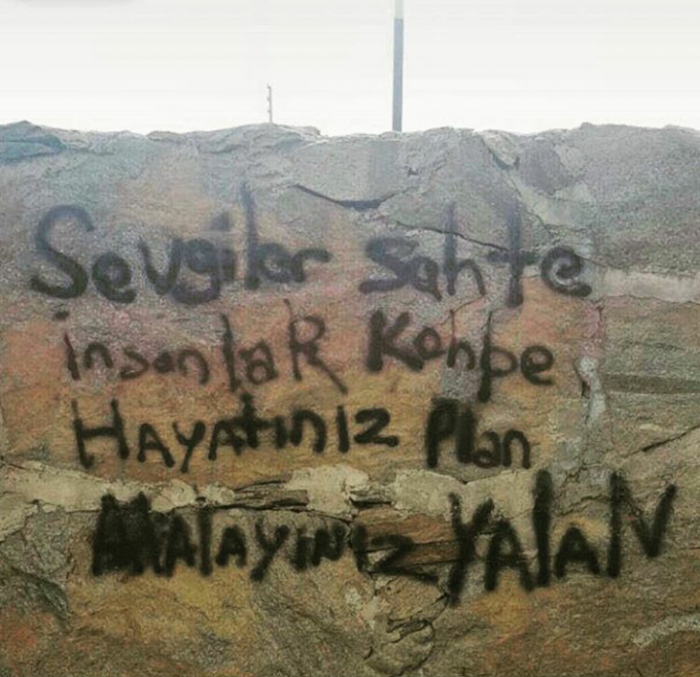 Sevgiler Sahte
insanlaR Kahpe
HAYAtınız Plan
AlAlAyınız YAlaN